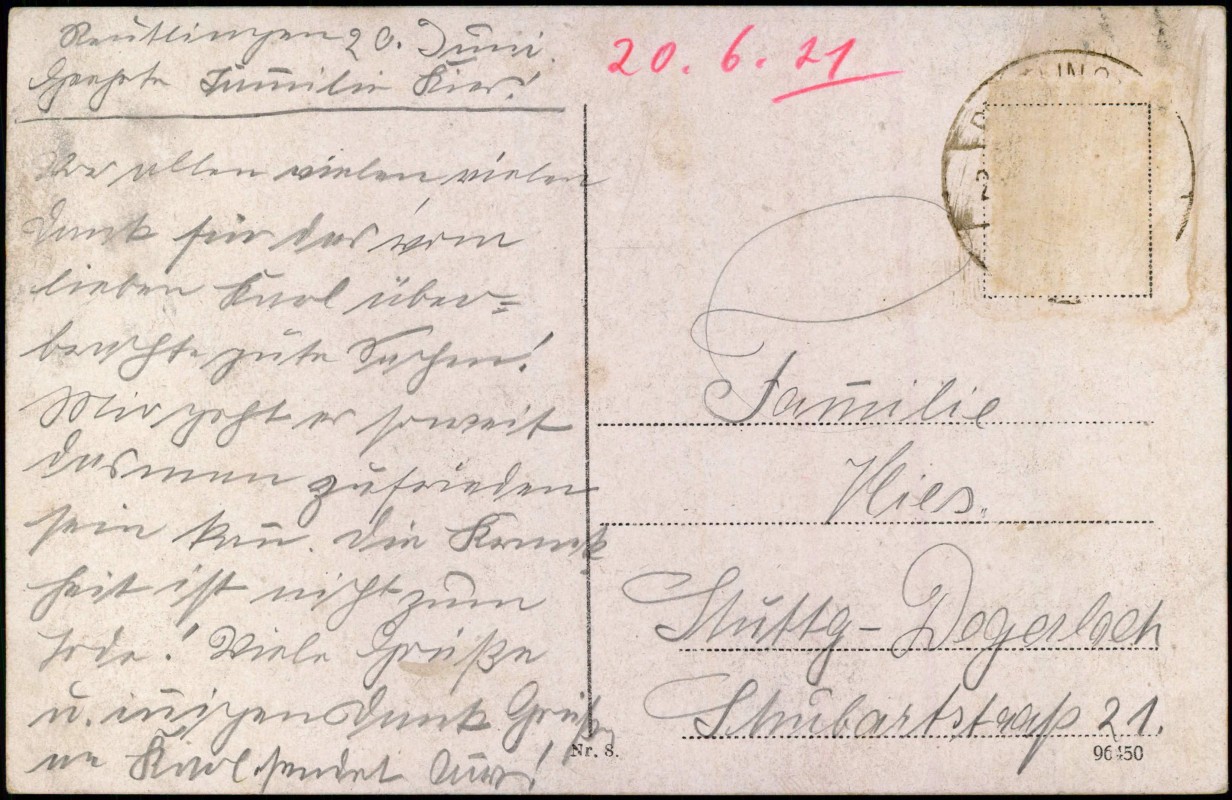 Reutlingen 20. Juni.
Geehrte Familie
20. 6. 21
Vor allen vielen vielen
Dank für das vom
lieben Karl über=
brachte gute Sachen!
Mir geht es soweit
das man zufrieden
sein kan̄. Die Krank
heit ist nicht zum
Tode! Viele Grüße
u. in̄igen Dank Grüße
an Karl sendet
Familie
Stuttg-Degerloch
Schubartstraß 21.
Nr. 8.
96450